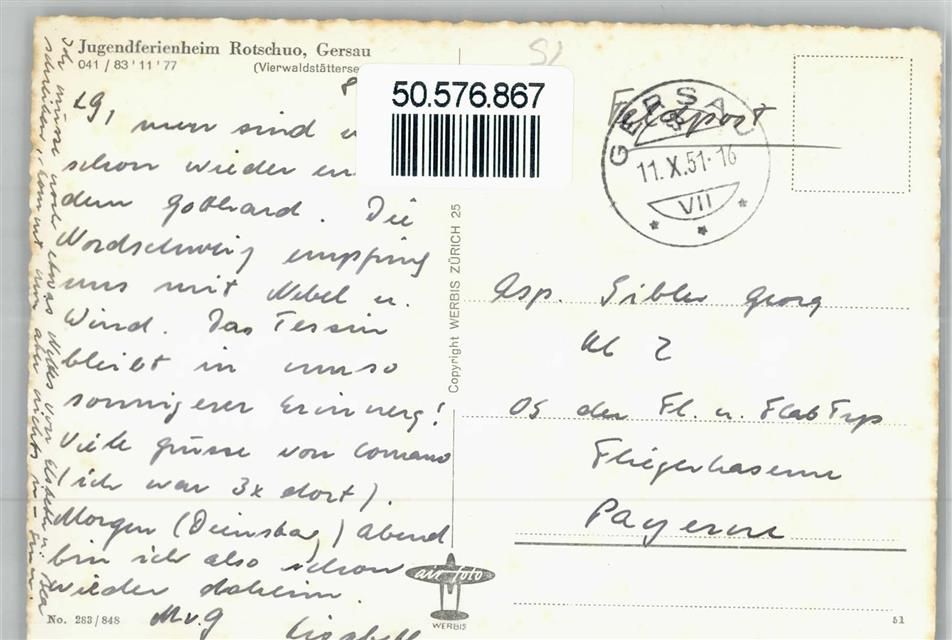 Jugendferienheim Rotschuo, Gersau
041 / 83'11'77
(Vierwaldstätterse
50.576.867
LG,
nun sind
schon wieder
dem Gotthard. Die
Nordschweiz empfing
uns mit Nebel u.
Wind. Das Tessin
bleibt in umso
sonnigerer Erinnerg!
Viele Grüsse von Comano
(ich war 3x dort).
Morgen (Dienstag) Abend
bin ich also schon
wieder daheim.
M.v.G
Ich müsse noch etwas Nettes von
schreiben, kommt mir aber nichts in
Copyright WERBIS ZÜRICH 25
air foto
WERBIS
No. 283/848
Feldpost
GERSAU
11.X.51-16
VII
Asp. Gibler Georg
Kl 2
OS der Fl. u. Flab Trp
Fliegerkaserne
Payerne
51